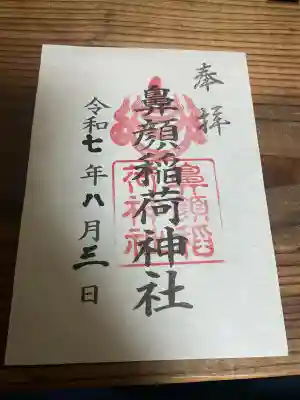 奉拝
鼻顔稲荷神社
鼻顔稲
荷神社
令和七年八月三日